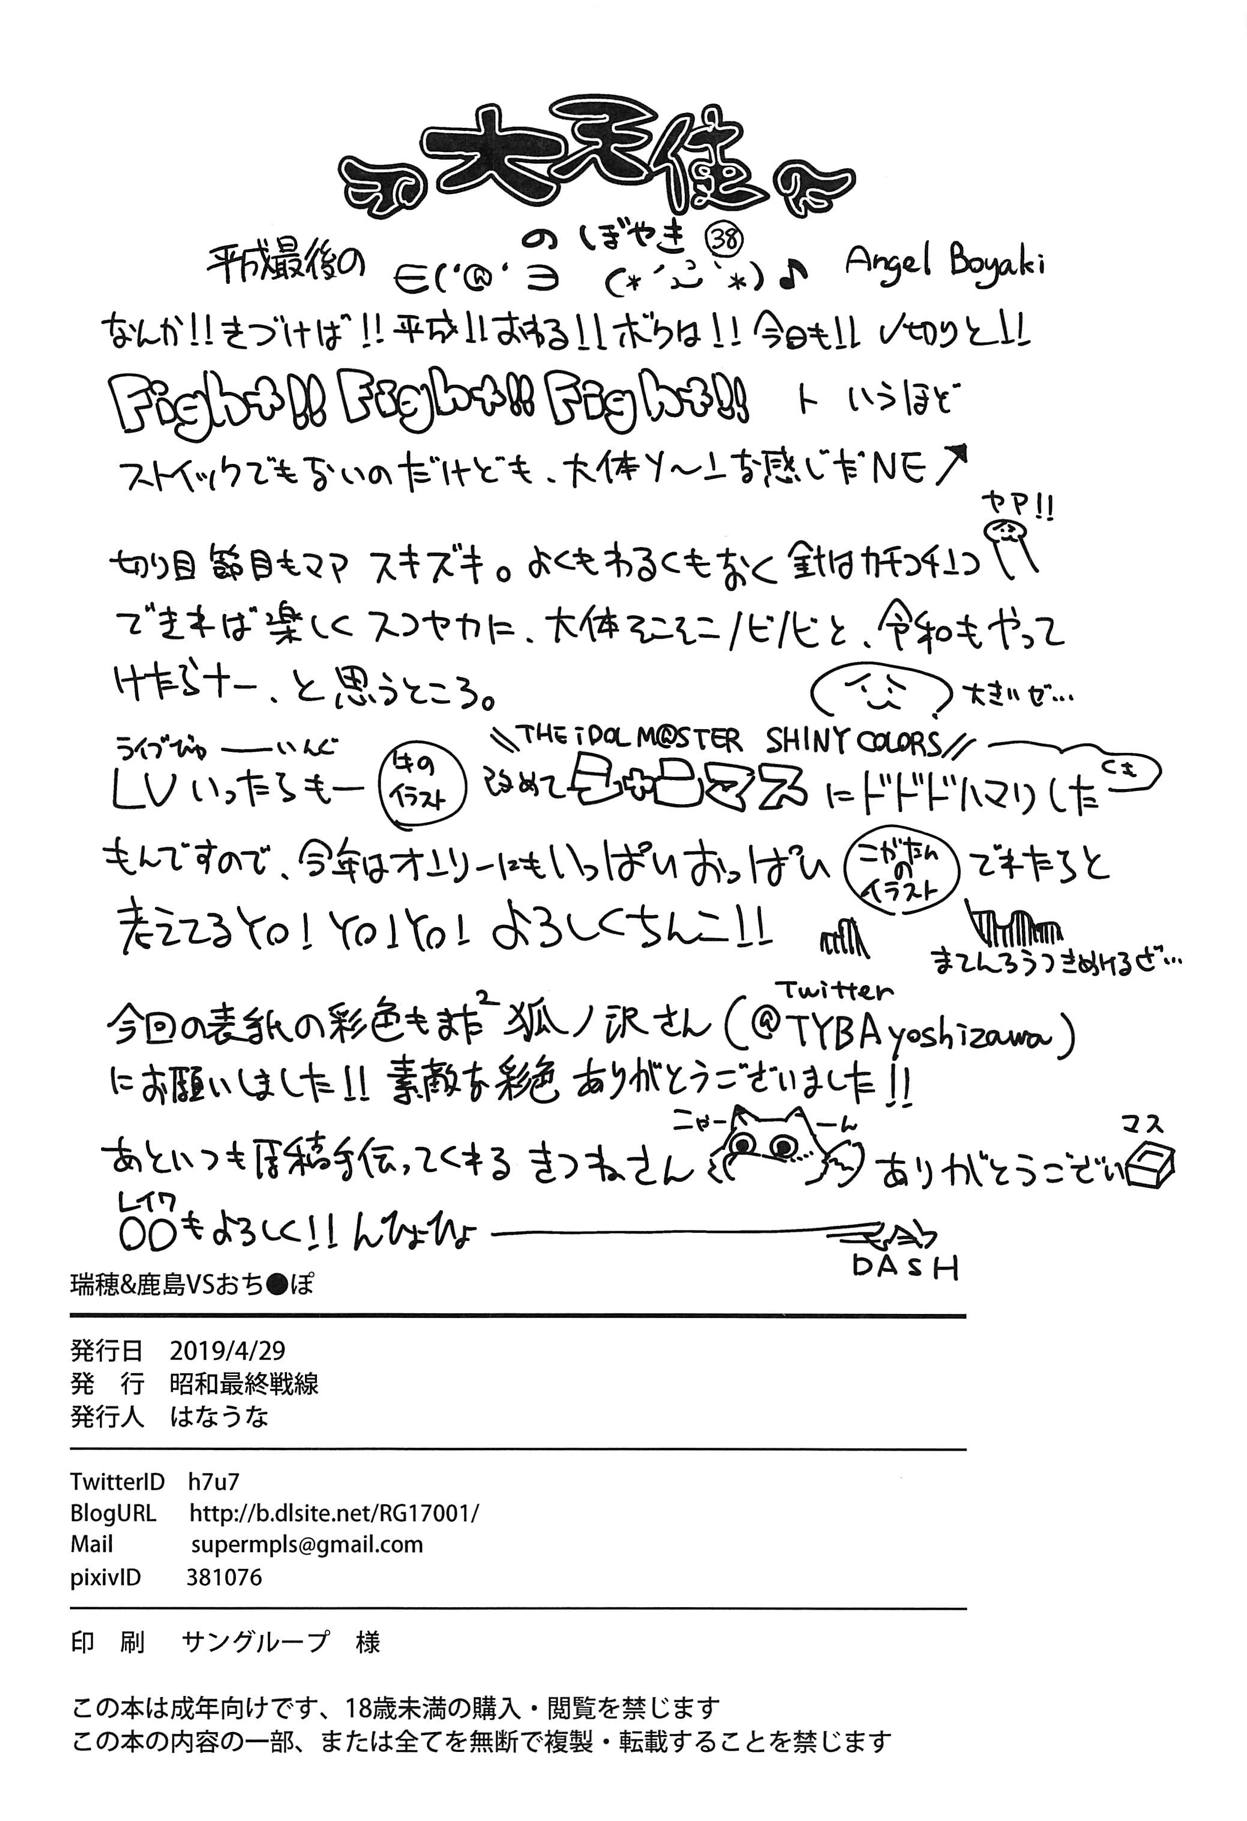 大天使
のぼやき 38
平成最後の ∈('@'∋ (*´ `*)♪ Angel Boyaki
なんか!!きづけば!!平成!!おわる!!ボクは!!今日も!!〆切りと!!
Fight!! Fight!! Fight!! ト いうほど
ストイックでもないのだけども、大体ソ〜ユな感じだNE↗
ヤア!!
切り目 節目もママ スキズキ。よくもわるくもなく 針はカチコチ
できれば楽しくスコヤカに、大体そこそこノビノビと、令和もやって
けたらナー、と思うところ。
大きいぜ…
ライブびゅーーいんぐ
\\THE iDOLM@STER SHINY COLORS//
LVいったらもー 件のイラスト 改めてシャニマスにドドドハマりした
くき
もんですので、今年はオンリーにもいっぱいおっぱい こがたんのイラスト でれたらと
考えてるYO!YO!YO!よろしくちんこ!!
まてんろうつきぬけるぜ…
Twitter
今回の表紙の彩色もまた2 狐ノ沢さん(@TYBAyoshizawa)
にお願いしました!!素敵な彩色ありがとうございました!!
こゃーーん
マス
あといつも原稿手伝ってくれる きつねさん ありがとうござい
レイワ
〇〇もよろしく!!んひょひょ
DASH
瑞穂&鹿島VSおち●ぽ
発行日 2019/4/29
発 行 昭和最終戦線
発行人 はなうな
TwitterID h7u7
BlogURL http://b.dlsite.net/RG17001/
Mail supermpls@gmail.com
pixivID 381076
印 刷 サングループ 様
この本は成年向けです、18歳未満の購入・閲覧を禁じます
この本の内容の一部、または全てを無断で複製・転載することを禁じます